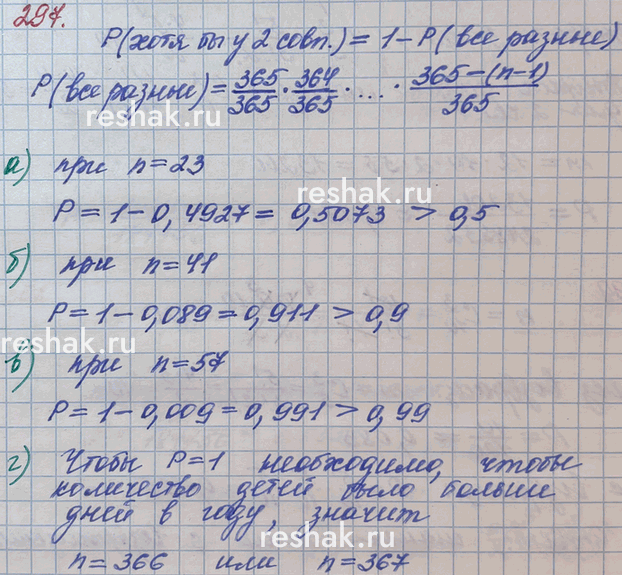 297.
P(хотя бы у 2 совп.) = 1 - P(все разные)
P(все разные) = 365/365 · 364/365 · .... · 365-(n-1)/365
reshak.ru
а) при n=23
reshak.ru
P = 1 - 0,4927 = 0,5073 > 0,5
б) при n=41
P = 1 - 0,089 = 0,911 > 0,9
reshak.ru
в) при n=57
reshak.ru
P = 1 - 0,009 = 0,991 > 0,99
г) Чтобы P=1 необходимо, чтобы
количество детей было больше
reshak.ru
дней в году, значит
reshak.ru
n=366 или n=367